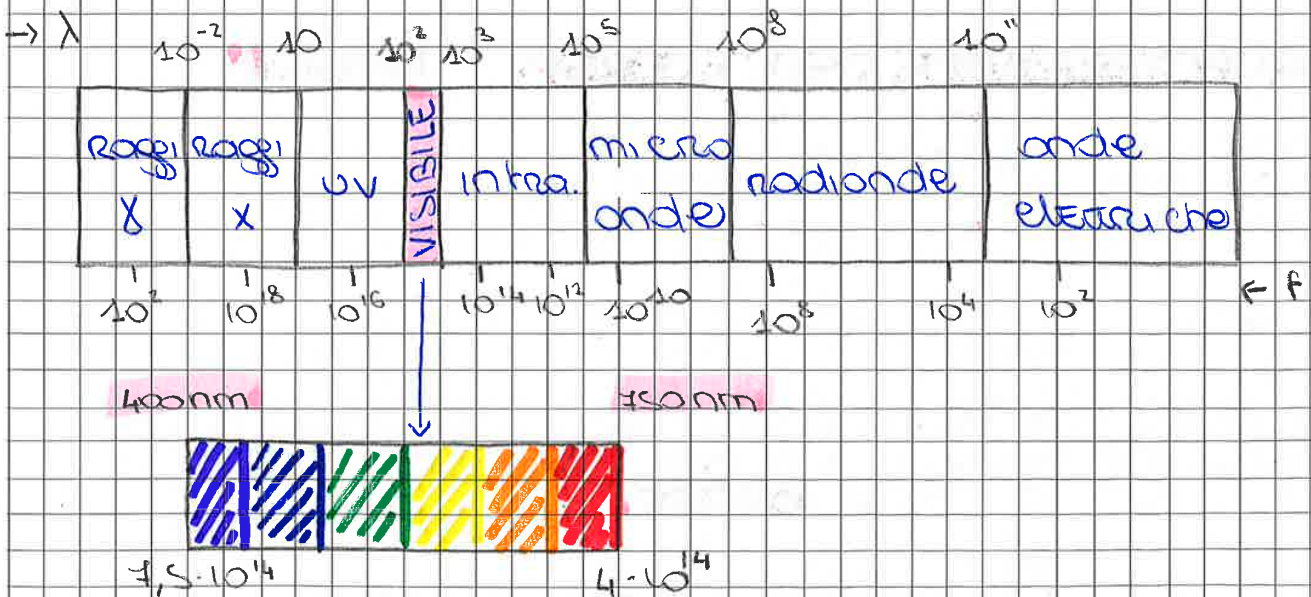 → λ 10⁻² 10 10² 10³ 10⁵ 10⁸ 10¹¹
Raggi γ Raggi x UV VISIBILE infra. micro onde radionde onde elettriche
10² 10¹⁸ 10¹⁶ 10¹⁴ 10¹² 10⁻¹⁰ 10⁸ 10⁴ 10² ← f
400nm 750nm
7,5·10¹⁴ 4·10¹⁴